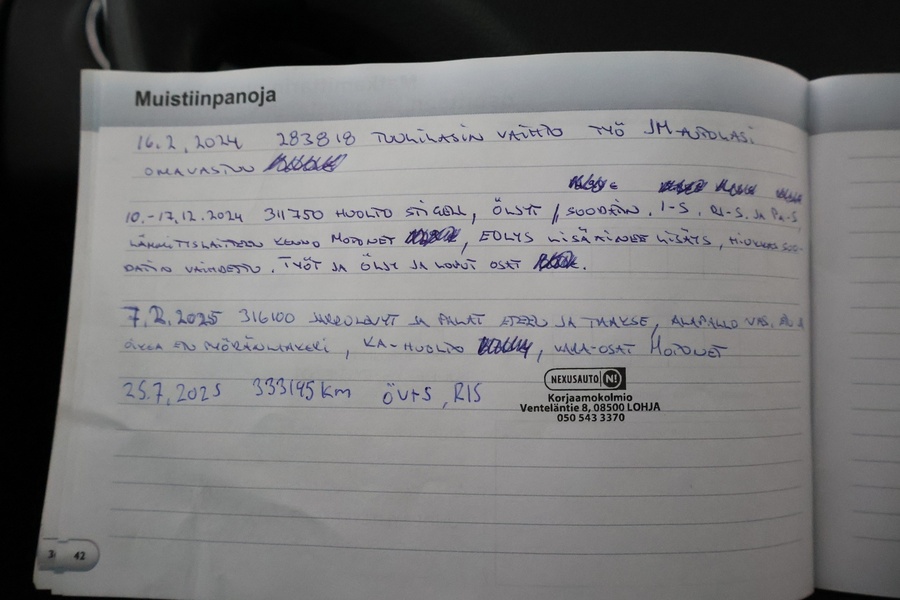 Muistiinpanoja
16.2.2024 283818 TUULILASIN VAIHTO TYÖ JM-AUTOLASI
OMAVASTUU
10.-17.12.2024 311750 HUOLTO ÖLJYT / SUODATIN, I-S, RI-S. JA PA-S,
LÄMMITYSLAITTEEN KENNO MOTONET, EOLYS LISÄAINEE LISÄYS, HIUKKASSUO-
DATIN VAIHDETTU. TYÖT JA ÖLJY JA LOPUT OSAT.
7.2.2025 316100 JARRULEVYT JA PALAT ETEEN JA TAAKSE, ALAPALLO VAS.
OIKEA PYÖRÄNLAAKERI, KA-HUOLTO, VARA-OSAT MOTONET
25.7.2025 333195 km ÖV+S, RIS
NEXUSAUTO N!
Korjaamokolmio
Venteläntie 8, 08500 LOHJA
050 543 3370
42